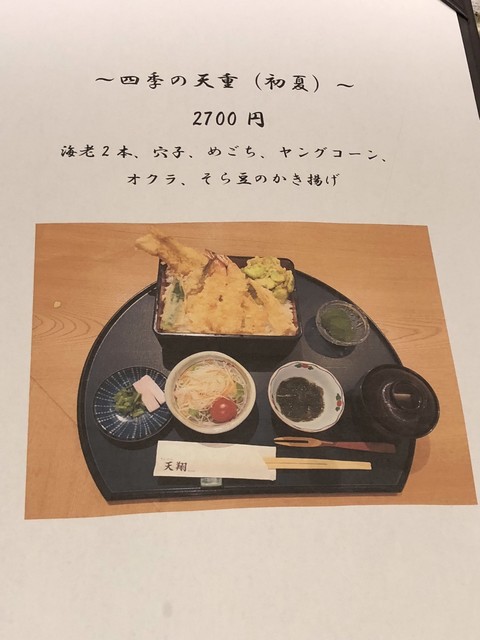 ～四季の天重（初夏）～
2700円
海老2本、穴子、めごち、ヤングコーン、
オクラ、そら豆のかき揚げ
天翔